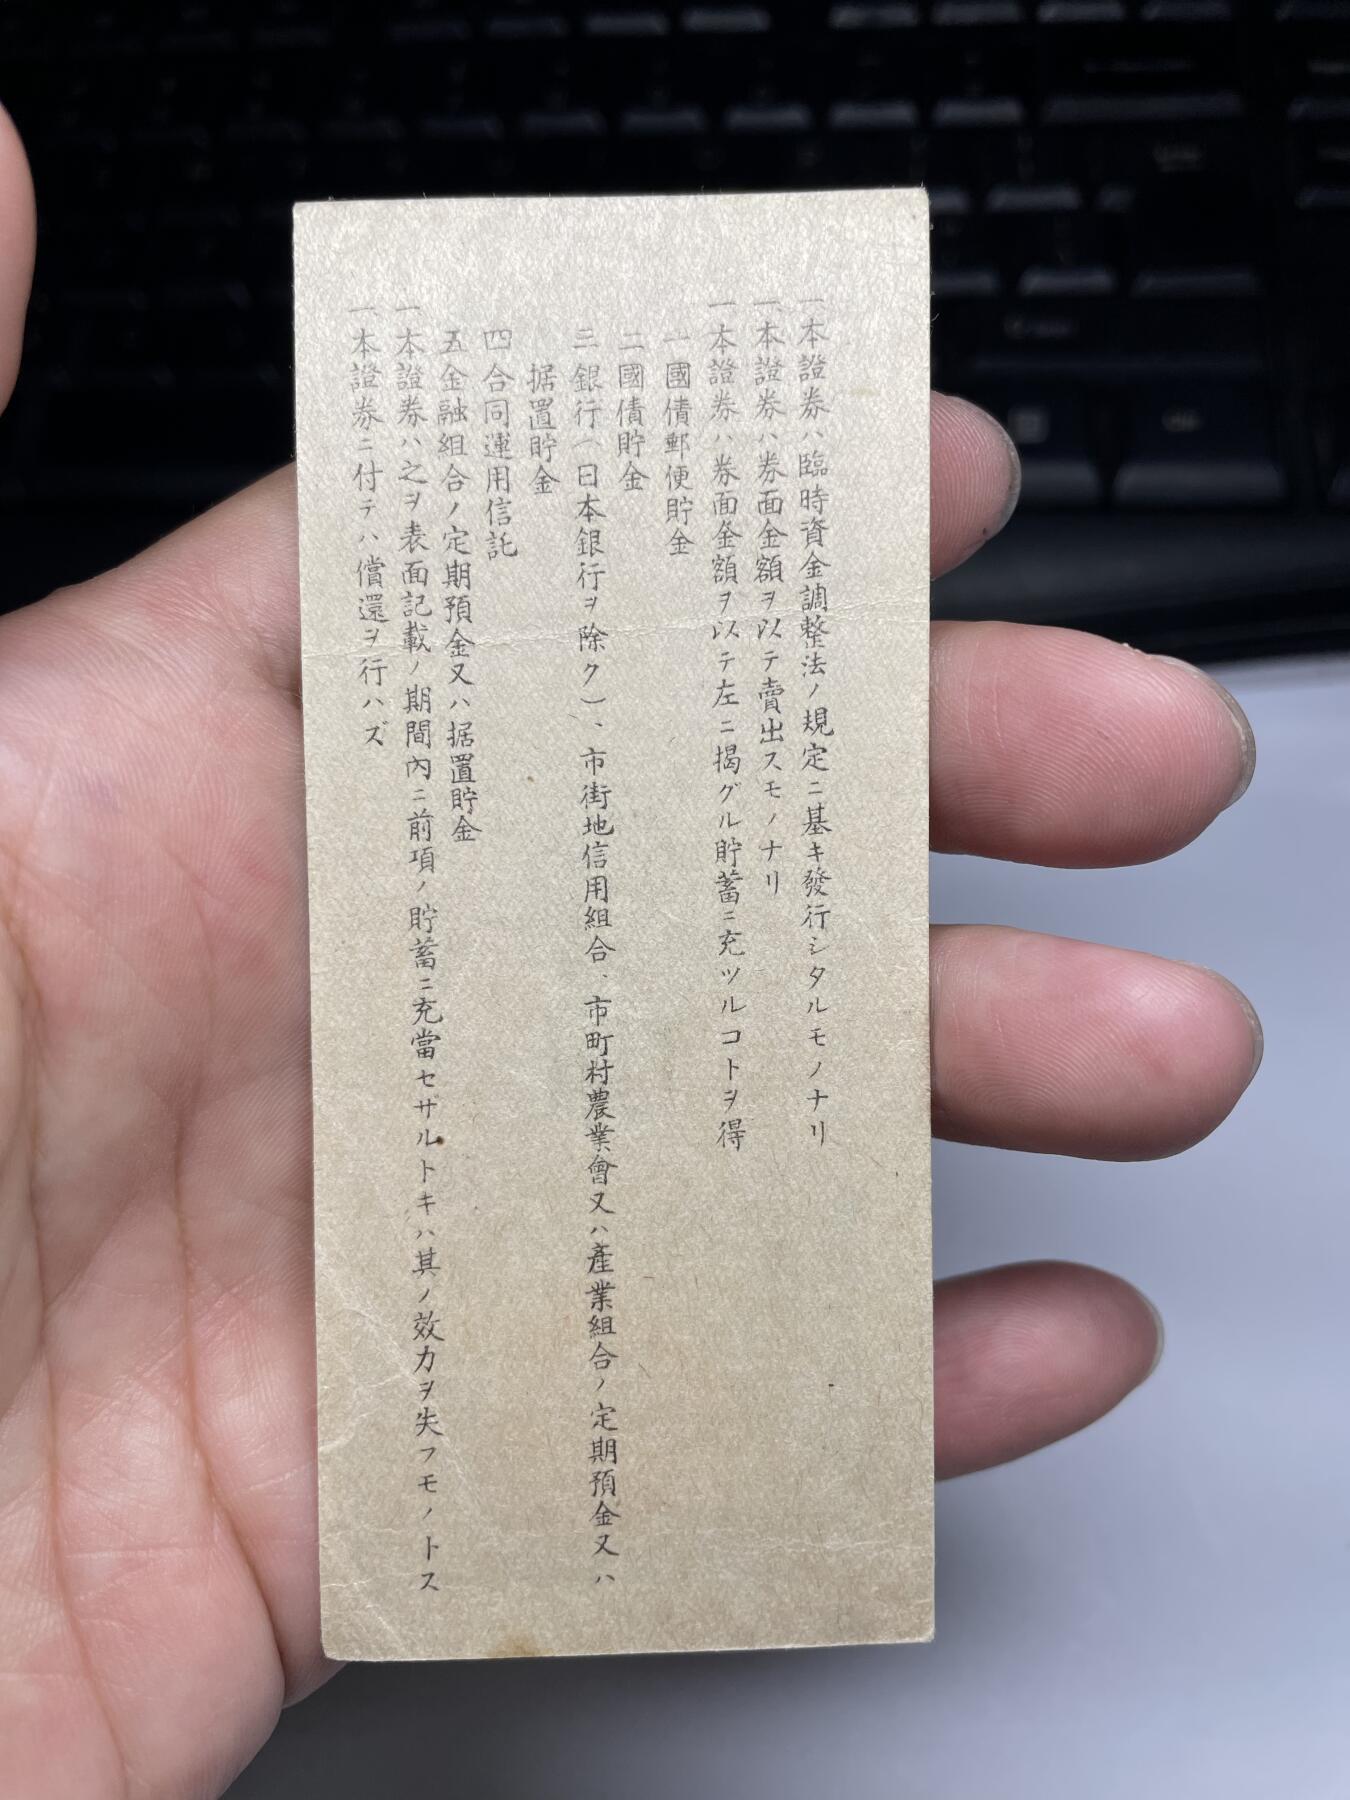 一、本證券ハ臨時資金調整法ノ規定ニ基キ發行シタルモノナリ
一、本證券ハ券面金額ヲ以テ賣出スモノナリ
一、本證券ハ券面金額ヲ以テ左ニ揭グル貯蓄ニ充ツルコトヲ得
一 國債郵便貯金
二 國債貯金
三 銀行（日本銀行ヲ除ク）、市街地信用組合、市町村農業會又ハ產業組合ノ定期預金又ハ
据置貯金
四 合同運用信託
五 金融組合ノ定期預金又ハ据置貯金
一、本證券ハ之ヲ表面記載ノ期間內ニ前項ノ貯蓄ニ充當セザルトキハ其ノ效力ヲ失フモノトス
一、本證券ニ付テハ償還ヲ行ハズ